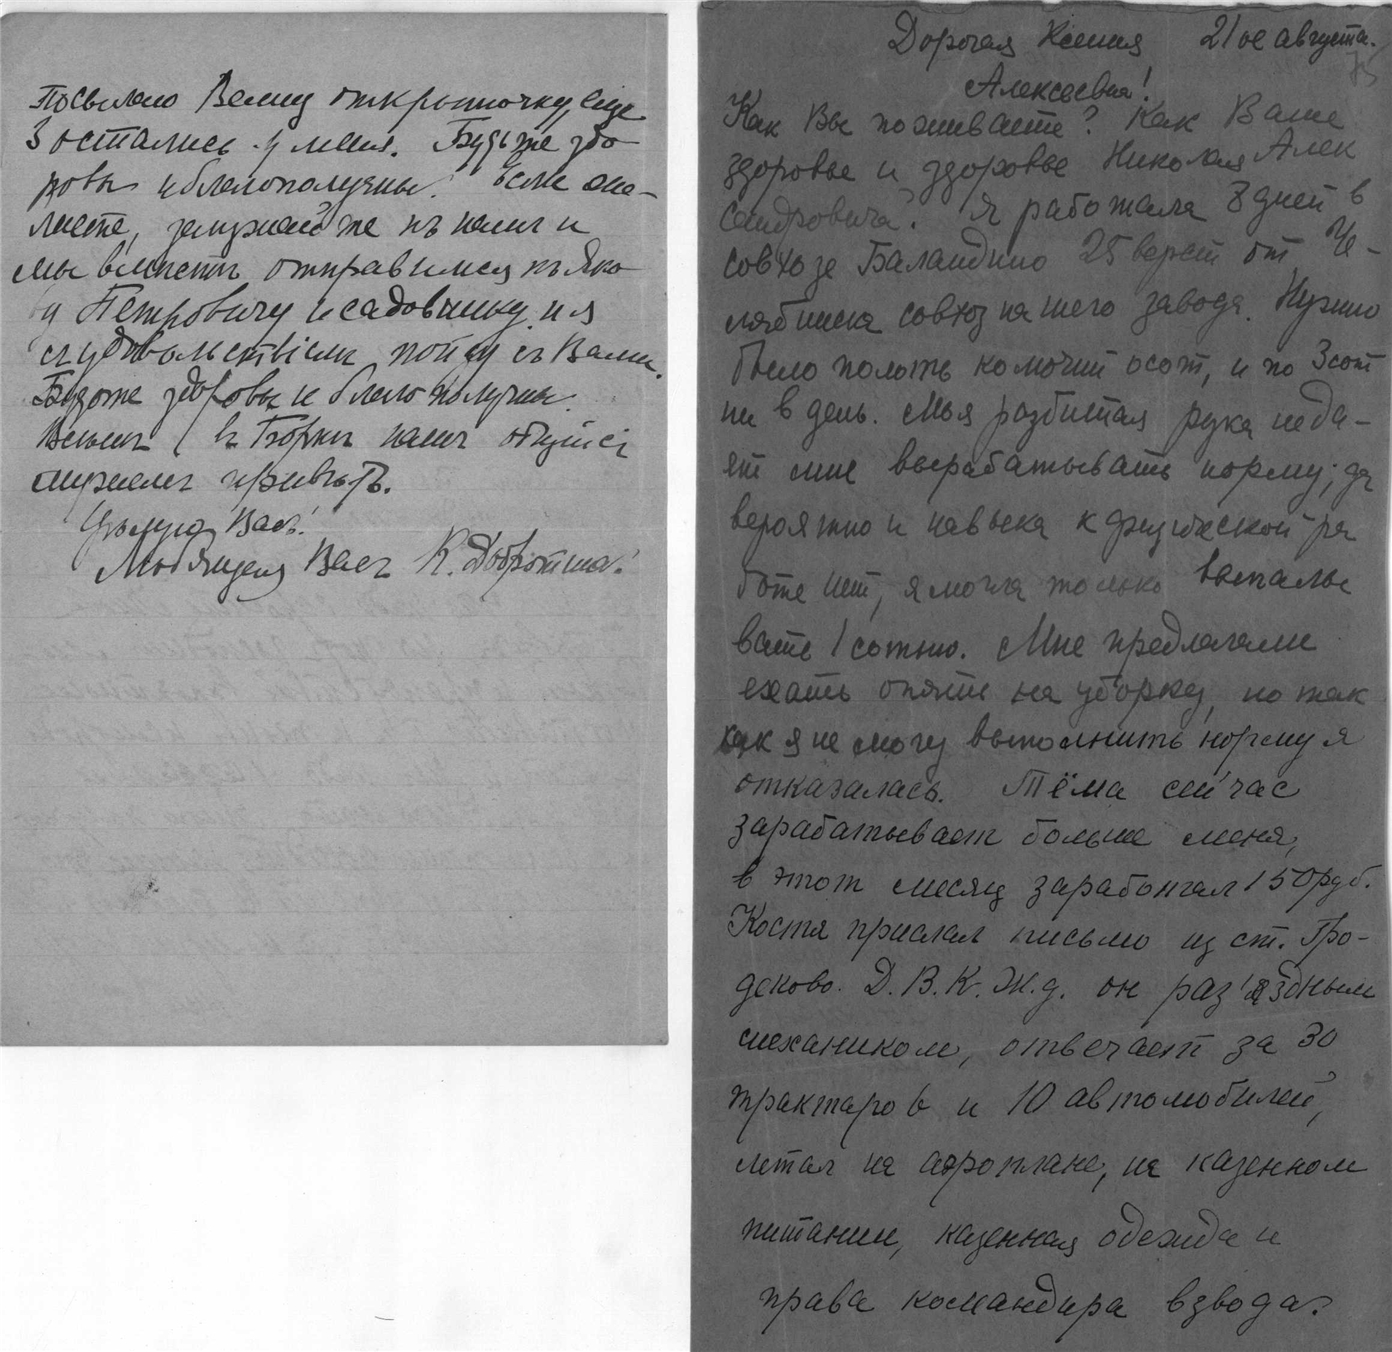 Посылаю Вам открыточку, еще
3 остались у меня. Будьте здо-
ровы и благополучны. Если ска-
жете, же къ намъ и
мы вместе отправимся къ Яко-
ву Петровичу и садовнику и я
съ удовольствіемъ пойду съ Вами.
Будьте здоровы и благополучны.
Всемъ въ Боркъ нашъ общій
привѣтъ.
Цѣлую Васъ!
Любящая Васъ К. Доброт
Дорогая Ксения 21ое августа.
75
Алексеевна!
Как Вы поживаете? Как Ваше
здоровье и здоровье Николая Алек
сандровича? Я работала 8 дней в
совхозе Баландино 25 верст от Че-
лябинска совхоз нашего завода. Нужно
было полоть колючий осот, и по 3 сот
ни в день. Моя разбитая рука не да-
ет мне вырабатывать норму; да
вероятно и навыка к физической ра
боте нет, я могла только выпалы
вать 1 сотню. Мне предлагали
ехать опять на уборку, но так
как я не могу выполнить норму я
отказалась. Тёма сейчас
зарабатывает больше меня,
в этот месяц заработал 150 руб.
Костя прислал письмо из ст. Гро-
деково. Д.В.К. Ж.д. он раз'ездным
механиком, отвечает за 30
тракторов и 10 автомобилей,
летал на аэроплане, на казенном
питании, казенная одежда и
права командира взвода.